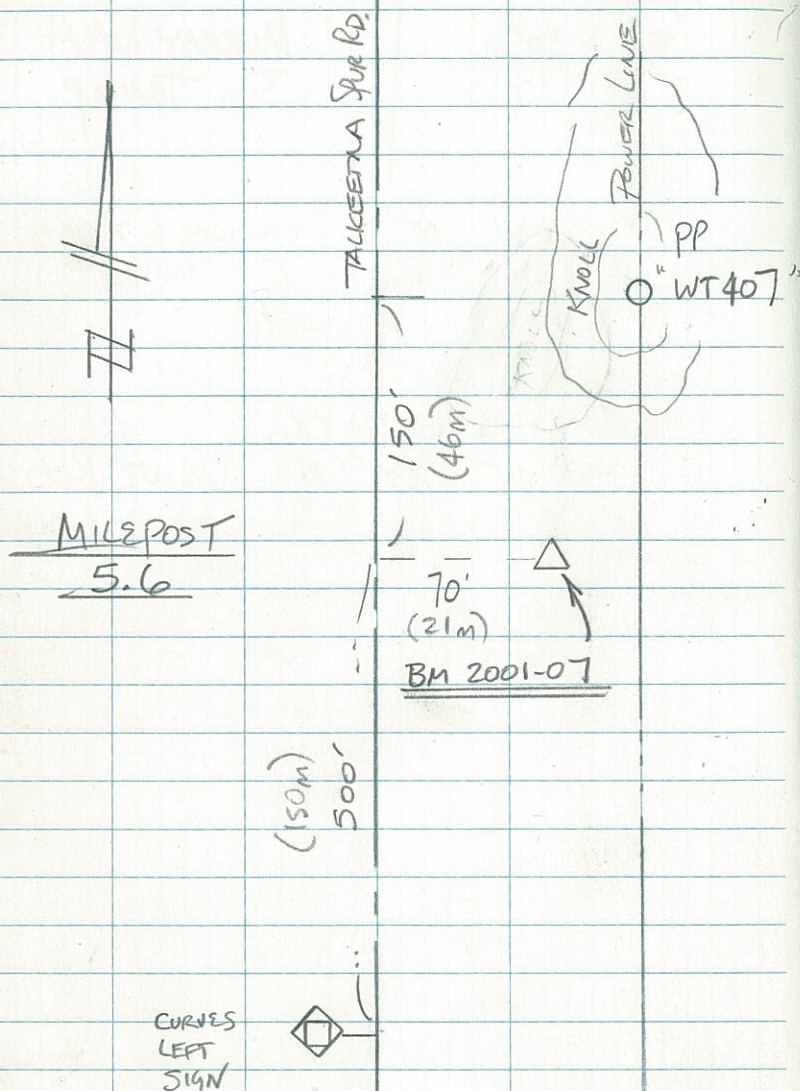 TALKEETNA SPUR RD.
POWER LINE
KNOLL
PP
"WT407"
N
150'
(46m)
MILEPOST
5.6
70'
(21m)
BM 2001-07
(150m)
500'
CURVES
LEFT
SIGN